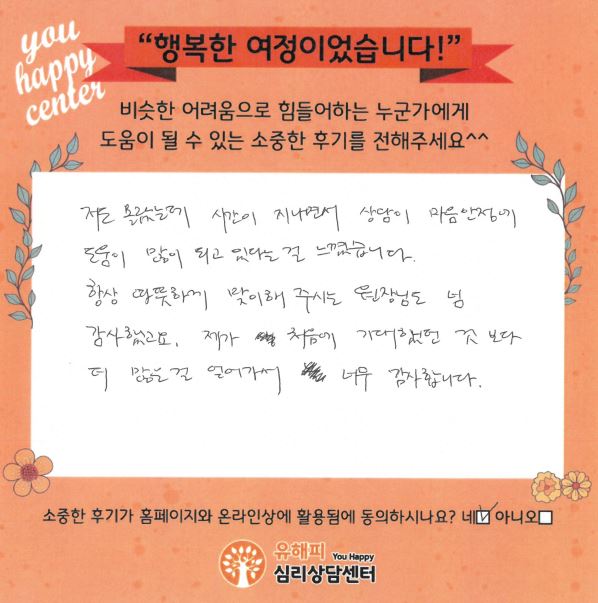 you
happy
center
“행복한 여정이었습니다!”
비슷한 어려움으로 힘들어하는 누군가에게
도움이 될 수 있는 소중한 후기를 전해주세요^^
저는 몰랐는데 시간이 지나면서 상담이 마음안정에
도움이 많이 되고 있다는 걸 느꼈습니다.
항상 따뜻하게 맞이해 주시는 원장님도 넘
감사했고요. 제가 처음에 기대했던 것 보다
더 많은 걸 얻어가서 너무 감사합니다.
소중한 후기가 홈페이지와 온라인상에 활용됨에 동의하시나요? 네☑ 아니오☐
유해피 You Happy
심리상담센터